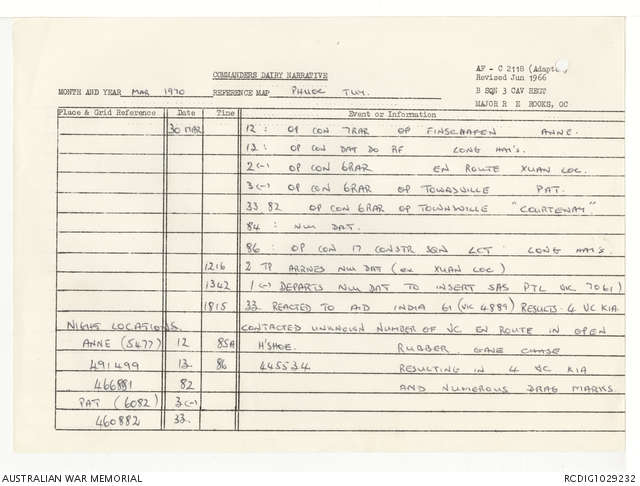 AF - C 2118 (Adapt
COMMANDERS DAIRY NARRATIVE
Revised Jun 1966
MONTH AND YEAR MAR 1970 REFERENCE MAP PHUOC TUY. B SQN 3 CAV REGT
MAJOR R E ROOKS, OC
Place & Grid Reference Date Time Event or Information
30 MAR 12 : OP CON 7RAR OP FINSCHAFEN ANNE.
13 : OP CON DAT DO RF LONG HAI'S.
2 (-) OP CON 6RAR EN ROUTE XUAN LOC.
3 (-) OP CON 6RAR OP TOWNSVILLE PAT.
33 82 OP CON 6RAR OP TOWNSVILLE "COURTENAY"
84 : NUI DAT.
86 : OP CON 17 CONSTR SQN LCT : LONG HAI'S.
1216 2 TP ARRIVES NUI DAT (EX XUAN LOC)
1342 1 (-) DEPARTS NUI DAT TO INSERT SAS PTL VIC 7061)
1815 33 REACTED TO AID INDIA 61 (VIC 4889) RESULTS - 4 VC KIA
NIGHT LOCATIONS. CONTACTED UNKNOWN NUMBER OF VC EN ROUTE IN OPEN
ANNE (5477) 12 85A H'SHOE. RUBBER GAVE CHASE
491499 13 86 445534 RESULTING IN 4 VC KIA
466881 82 AND NUMEROUS DRAG MARKS.
PAT (6082) 3 (-)
460882 33.
AUSTRALIAN WAR MEMORIAL RCDIG1029232